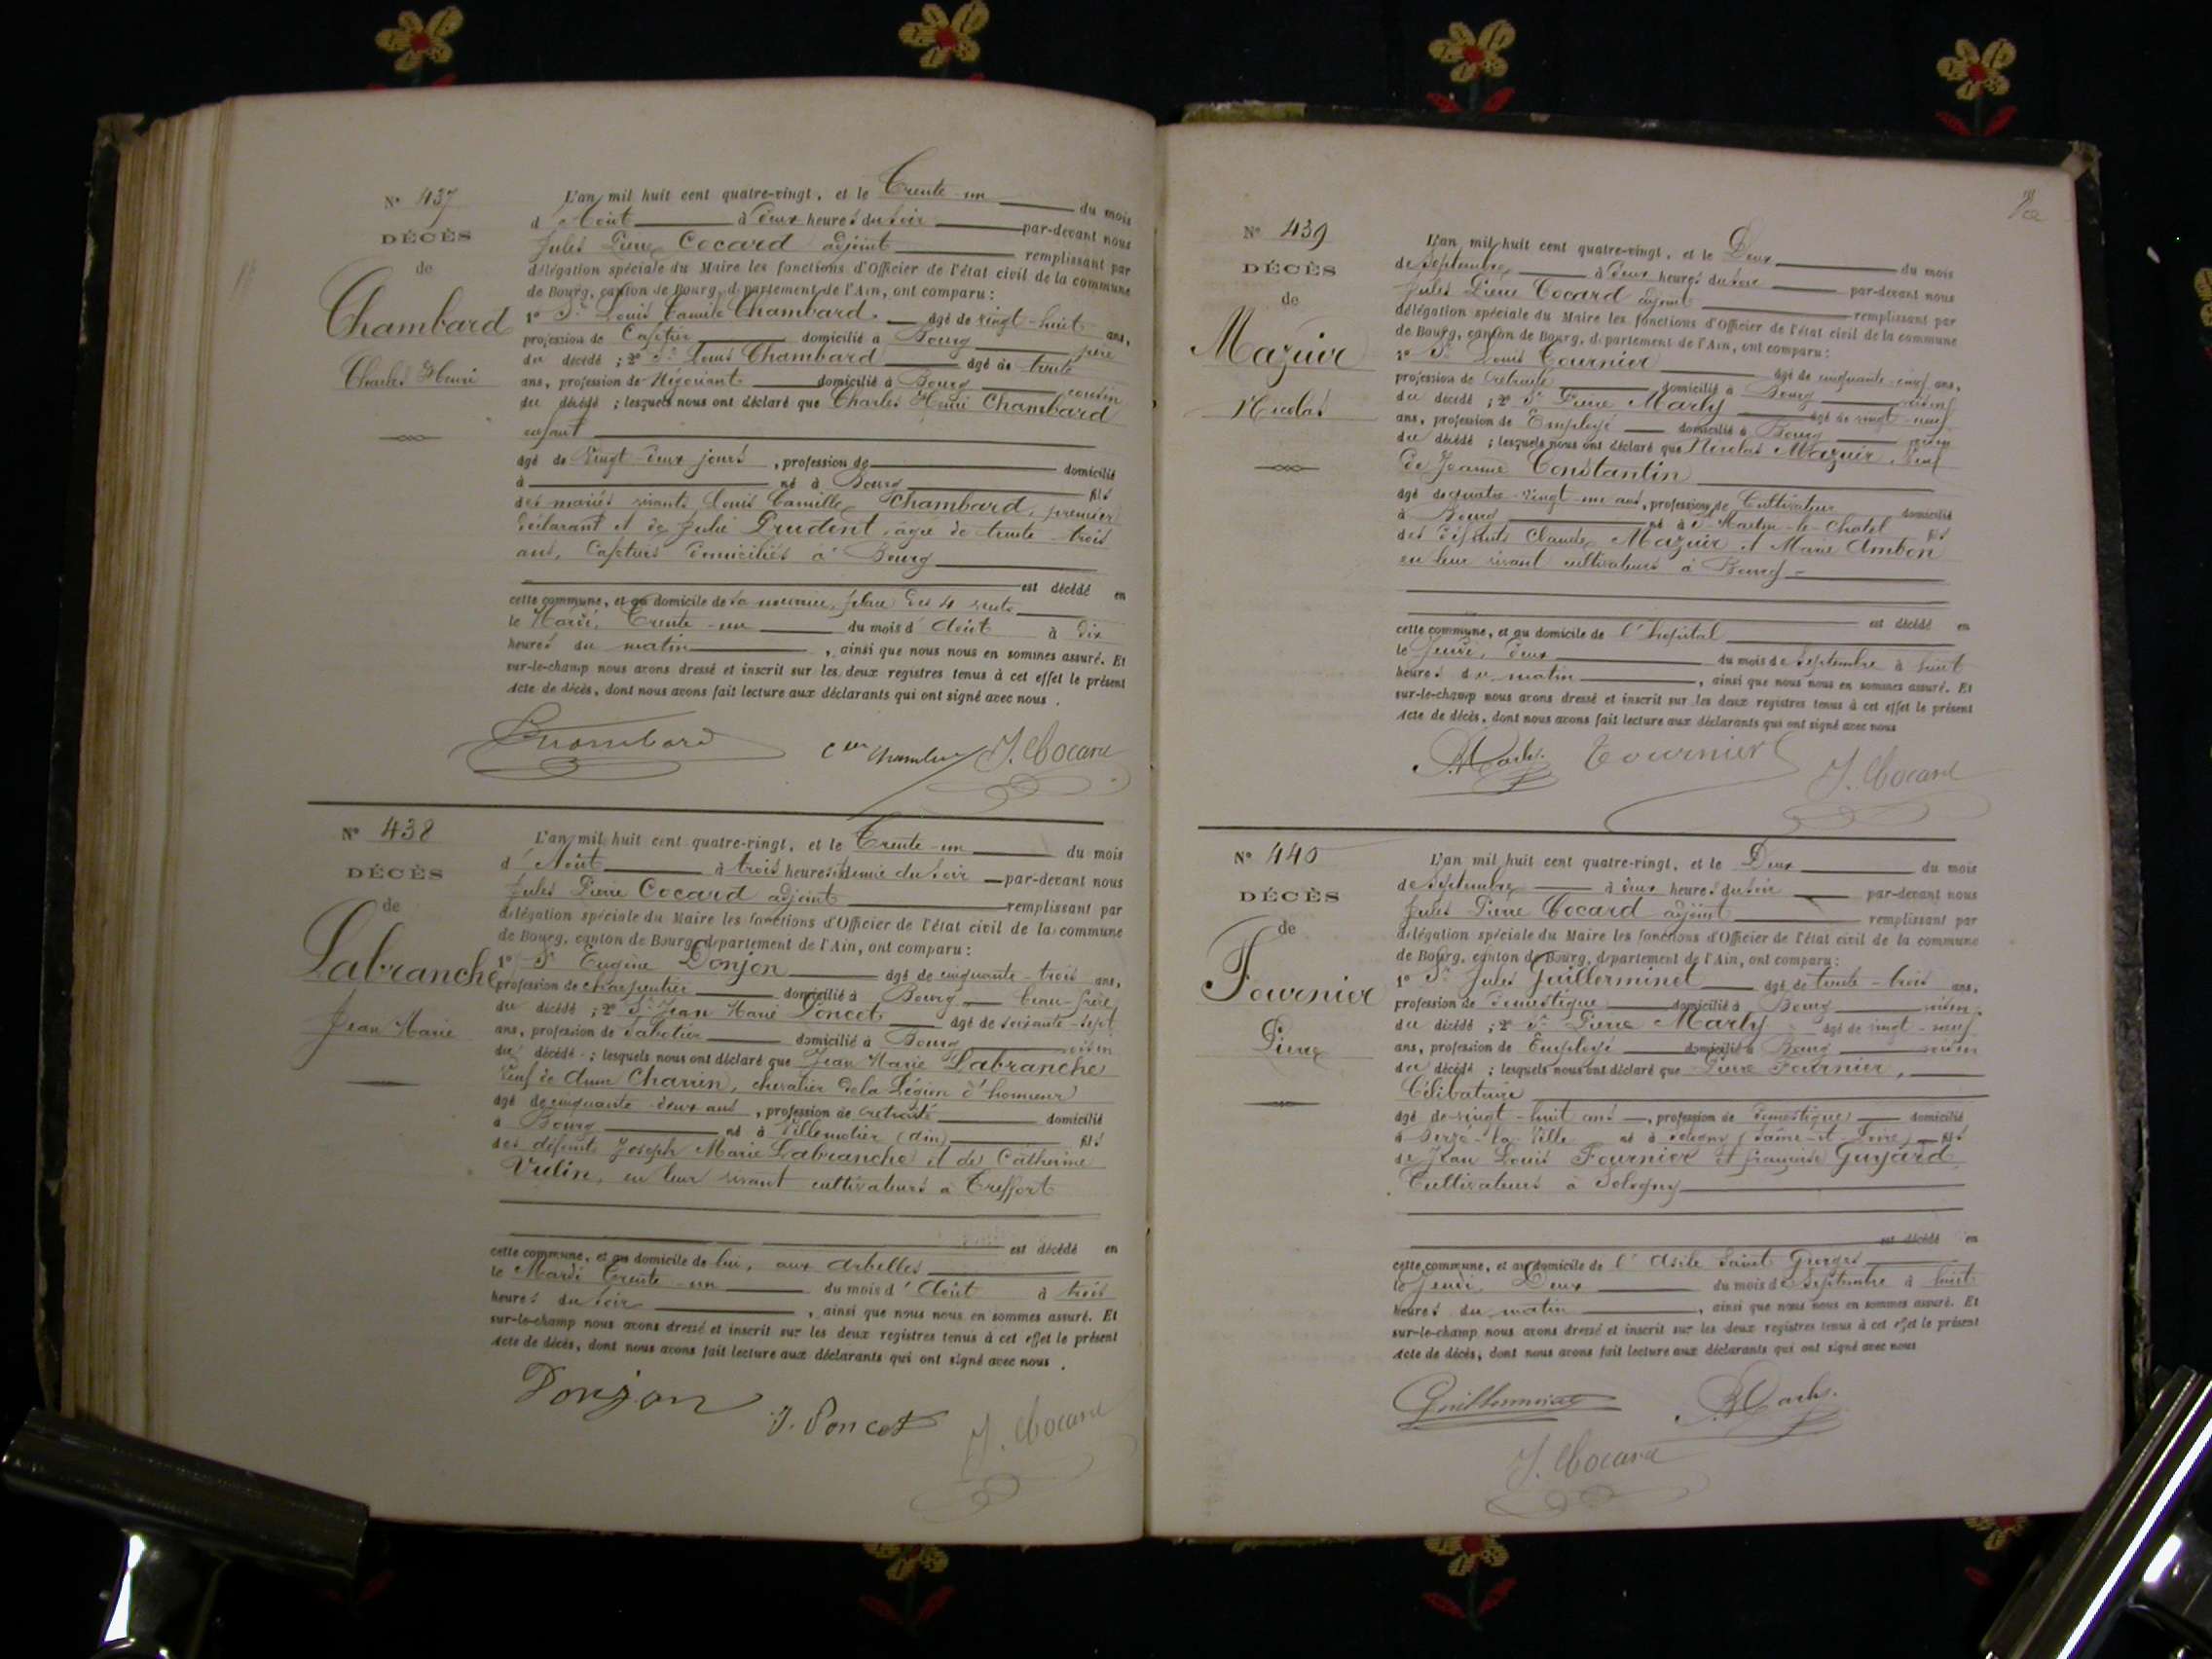 N° 437
DÉCÈS
de
Chambard
Charles Henri
L'an mil huit cent quatre-vingt, et le Trente-un du mois
d'Août à deux heures du soir par-devant nous
Jules Pierre Cocard adjoint remplissant par
délégation spéciale du Maire les fonctions d'Officier de l'état civil de la commune
de Bourg, canton de Bourg, département de l'Ain, ont comparu :
1° Sr Louis Camille Chambard. âgé de vingt-huit ans,
profession de Cafetier domicilié à Bourg père
du décédé ; 2° Sr Louis Chambard âgé de trente
ans, profession de Négociant domicilié à Bourg cousin
du décédé ; lesquels nous ont déclaré que Charles Henri Chambard
enfant
âgé de Vingt deux jours, profession de domicilié
à né à Bourg fils
des mariés vivants Louis Camille Chambard, premier
déclarant et de Julie Prudent, âgée de trente-trois
ans, Cafetiers domiciliés à Bourg
est décédé en
cette commune, et au domicile de sa nourrice, place des 4 vents
le Mardi, Trente-un du mois d'Août à dix
heures du matin, ainsi que nous nous en sommes assuré. Et
sur-le-champ nous avons dressé et inscrit sur les deux registres tenus à cet effet le présent
acte de décès, dont nous avons fait lecture aux déclarants qui ont signé avec nous.
Chambard J. Cocard
N° 438
DÉCÈS
de
Labranche
Jean Marie
L'an mil huit cent quatre-vingt, et le Trente-un du mois
d'Août à trois heures & demie du soir par-devant nous
Jules Pierre Cocard adjoint remplissant par
délégation spéciale du Maire les fonctions d'Officier de l'état civil de la commune
de Bourg, canton de Bourg, département de l'Ain, ont comparu :
1° Sr Eugène Donjon âgé de cinquante-trois ans,
profession de charpentier domicilié à Bourg beau-frère
du décédé ; 2° Sr Jean Marie Poncet âgé de soixante-sept
ans, profession de Sabotier domicilié à Bourg voisin
du décédé ; lesquels nous ont déclaré que Jean Marie Labranche
Veuf de Anne Charrin, chevalier de la Légion d'honneur
âgé de cinquante-deux ans, profession de retraité domicilié
à Bourg né à Villemotier (Ain) fils
des défunts Joseph Marie Labranche et de Catherine
Vulin, en leur vivant cultivateurs à Treffort
est décédé en
cette commune, et au domicile de lui, aux Arbelles
le Mardi Trente-un du mois d'Août à trois
heures du soir, ainsi que nous nous en sommes assuré. Et
sur-le-champ nous avons dressé et inscrit sur les deux registres tenus à cet effet le présent
acte de décès, dont nous avons fait lecture aux déclarants qui ont signé avec nous.
Donjon J. Poncet J. Cocard
N° 439
DÉCÈS
de
Mazuir
Nicolas
L'an mil huit cent quatre-vingt, et le Deux du mois
de Septembre à deux heures du soir par-devant nous
Jules Pierre Cocard adjoint remplissant par
délégation spéciale du Maire les fonctions d'Officier de l'état civil de la commune
de Bourg, canton de Bourg, département de l'Ain, ont comparu :
1° Sr Louis Tournier âgé de cinquante-neuf ans,
profession de retraité domicilié à Bourg voisin
du décédé ; 2° Sr Pierre Marly âgé de vingt-neuf
ans, profession de Employé domicilié à Bourg voisin
du décédé ; lesquels nous ont déclaré que Nicolas Mazuir, Veuf
de Jeanne Constantin
âgé de quatre-vingt-un ans, profession de Cultivateur domicilié
à Bourg né à St Martin-le-Chatel fils
des défunts Claude Mazuir et Marie Ambon
en leur vivant cultivateurs à Bourg
est décédé en
cette commune, et au domicile de l'hopital
le Jeudi, deux du mois de Septembre à huit
heures du matin, ainsi que nous nous en sommes assuré. Et
sur-le-champ nous avons dressé et inscrit sur les deux registres tenus à cet effet le présent
acte de décès, dont nous avons fait lecture aux déclarants qui ont signé avec nous
P. Marly Tournier J. Cocard
N° 440
DÉCÈS
de
Fournier
Pierre
L'an mil huit cent quatre-vingt, et le Deux du mois
de Septembre à deux heures du soir par-devant nous
Jules Pierre Cocard adjoint remplissant par
délégation spéciale du Maire les fonctions d'Officier de l'état civil de la commune
de Bourg, canton de Bourg, département de l'Ain, ont comparu :
1° Sr Jules Guillerminet âgé de trente-trois ans,
profession de domestique domicilié à Bourg voisin
du décédé ; 2° Sr Pierre Marly âgé de vingt-neuf
ans, profession de Employé domicilié à Bourg voisin
du décédé ; lesquels nous ont déclaré que Pierre Fournier,
Célibataire
âgé de vingt-huit ans, profession de domestique domicilié
à Berzé-la-Ville né à Sologny (Saône-et-Loire) fils
de Jean Louis Fournier et françoise Guyard,
Cultivateurs à Sologny
est décédé en
cette commune, et au domicile de l'Asile Saint Georges
le Jeudi Deux du mois de Septembre à huit
heures du matin, ainsi que nous nous en sommes assuré. Et
sur-le-champ nous avons dressé et inscrit sur les deux registres tenus à cet effet le présent
acte de décès, dont nous avons fait lecture aux déclarants qui ont signé avec nous
Guillerminet P. Marly
J. Cocard